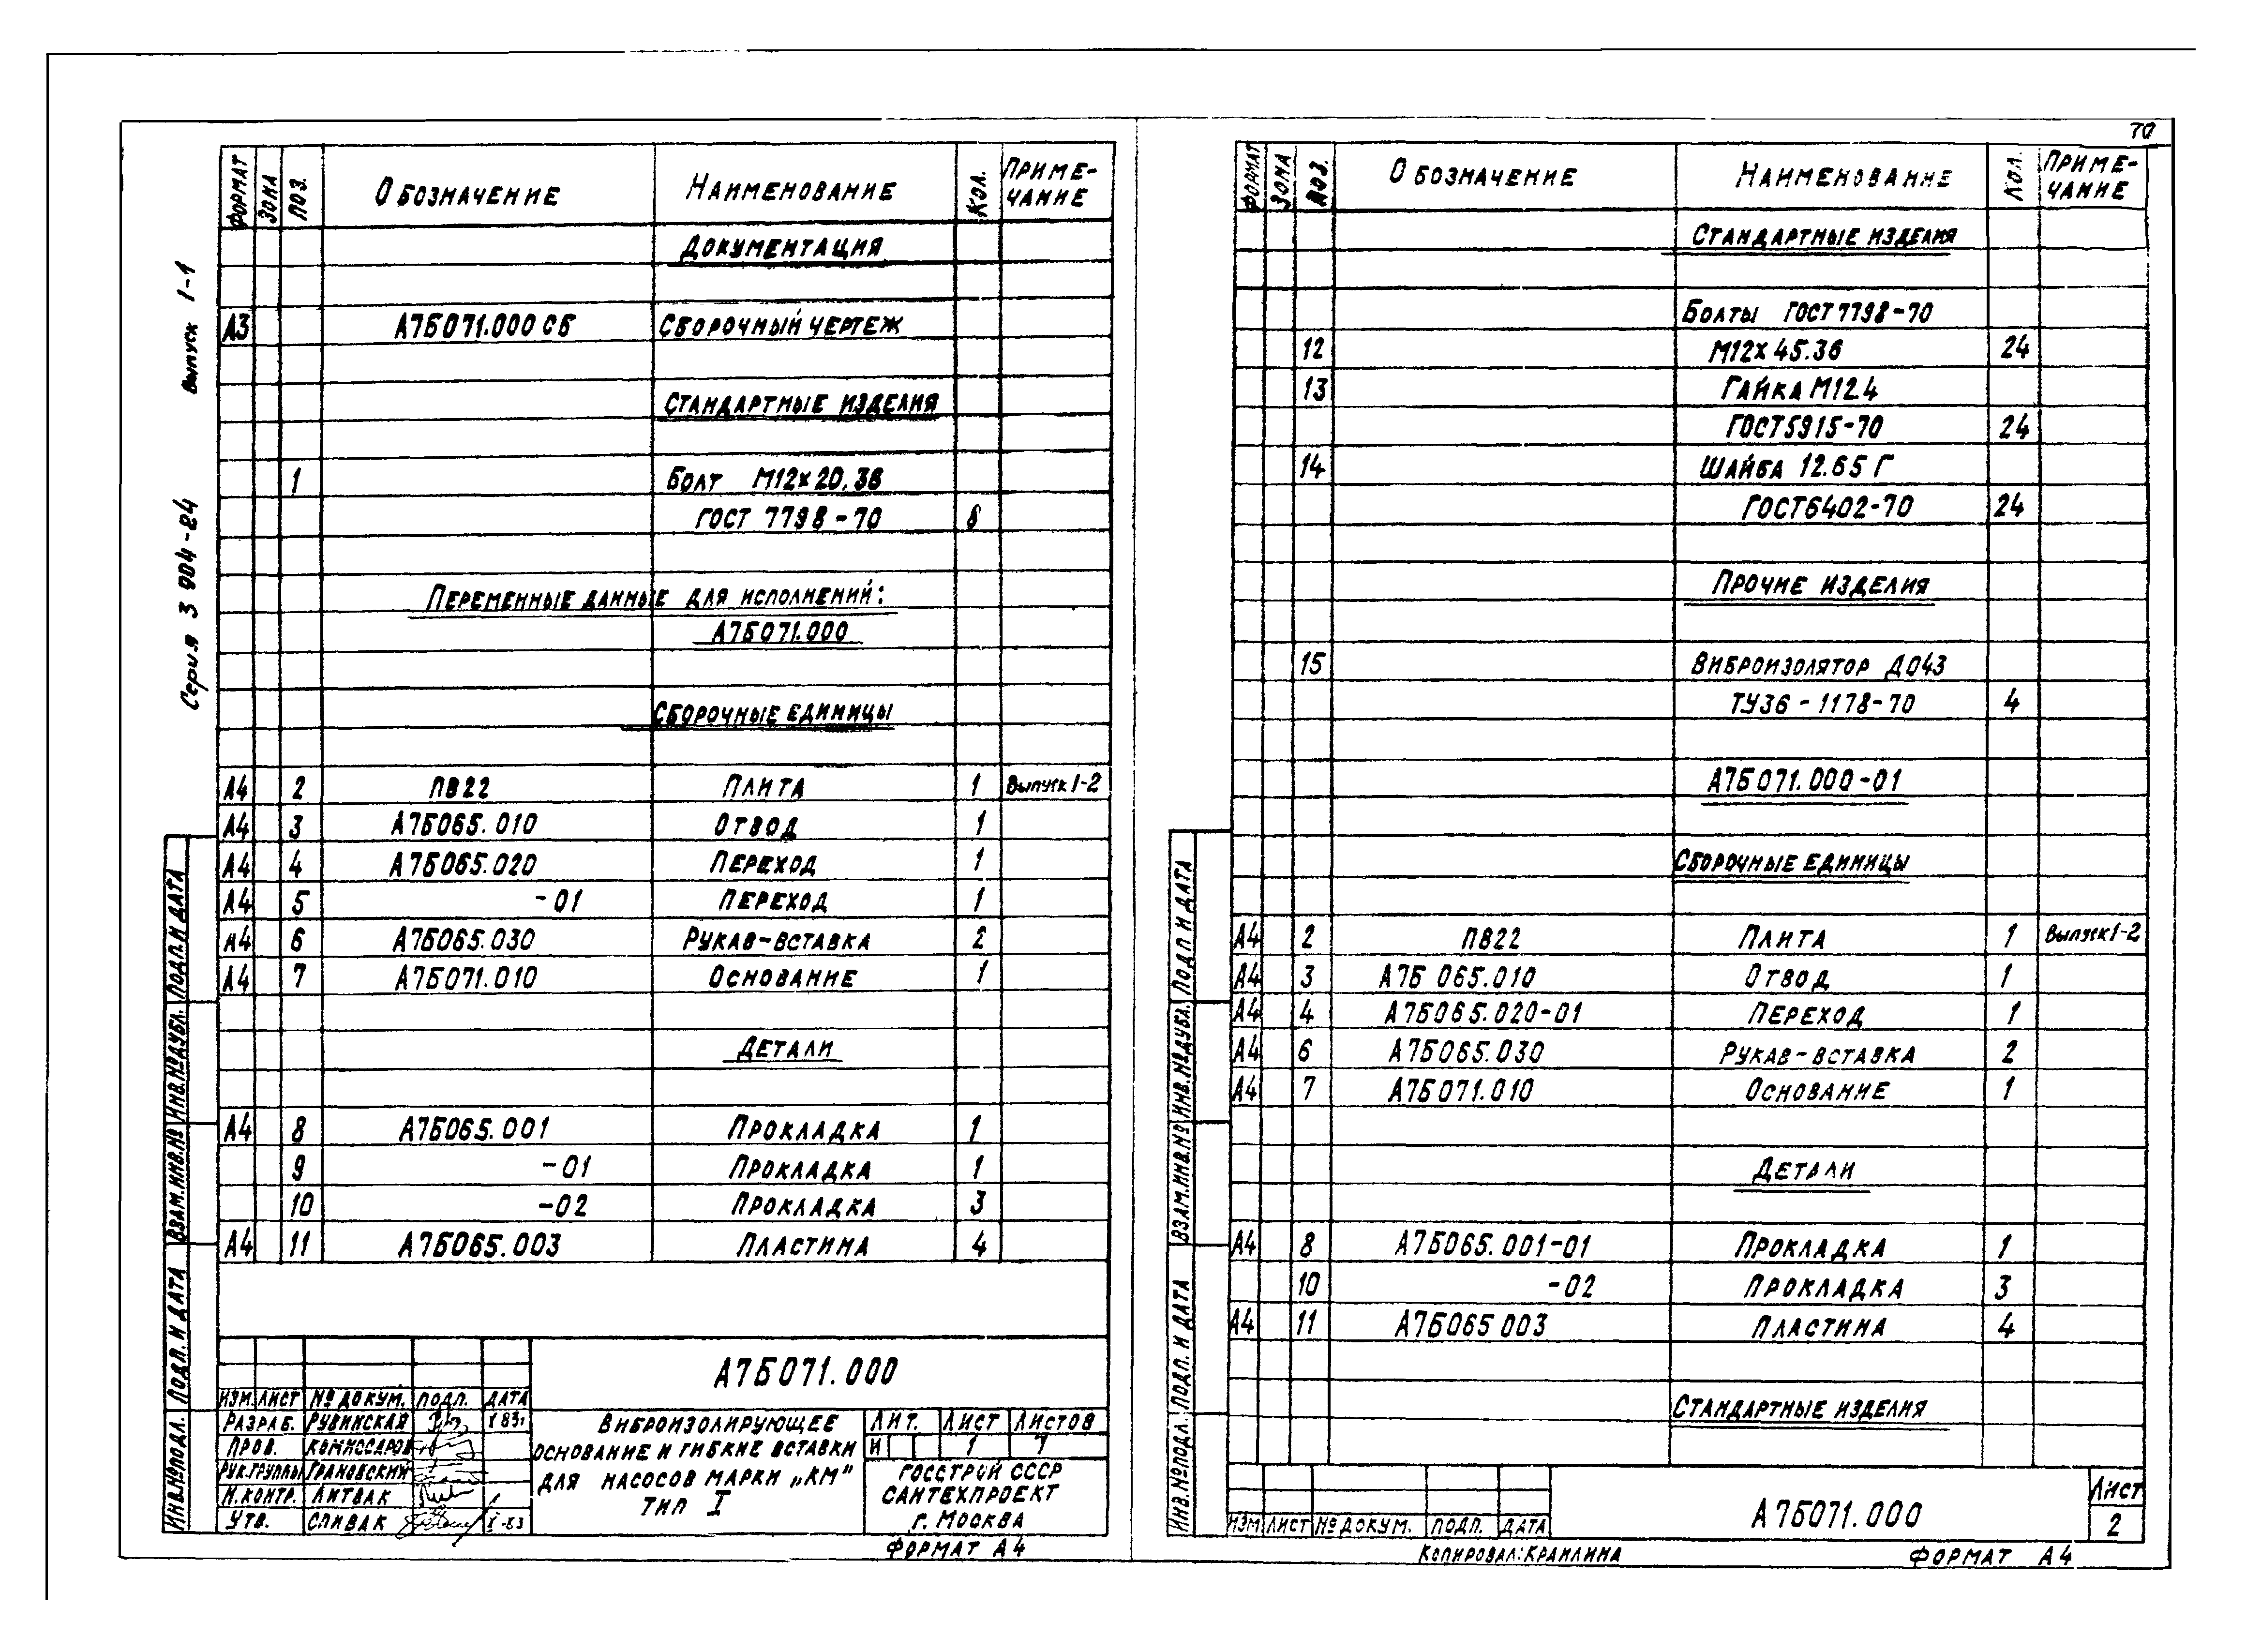 70
Серия 3 904-24 Выпуск 1-1
Формат Зона Поз. Обозначение Наименование Кол. Примечание
Документация
А3 А7Б071.000 СБ Сборочный чертеж
Стандартные изделия
1 Болт М12х20.36
ГОСТ 7798-70 8
Переменные данные для исполнений:
А7Б071.000
Сборочные единицы
А4 2 ПВ22 Плита 1 Выпуск 1-2
А4 3 А7Б065.010 Отвод 1
А4 4 А7Б065.020 Переход 1
А4 5 -01 Переход 1
А4 6 А7Б065.030 Рукав-вставка 2
А4 7 А7Б071.010 Основание 1
Детали
А4 8 А7Б065.001 Прокладка 1
9 -01 Прокладка 1
10 -02 Прокладка 3
А4 11 А7Б065.003 Пластина 4
Инв.№подл. Подп. и дата Взам.инв.№ Инв.№дубл. Подп. и дата
А7Б071.000
Изм. Лист № докум. Подп. Дата
Разраб. Рувинская X 83г
Пров. Комиссаров
Рук.группы Грановский
Н.контр. Литвак
Утв. Спивак X-83
Виброизолирующее
основание и гибкие вставки
для насосов марки „КМ"
Тип I
Лит. Лист Листов
И 1 7
Госстрой СССР
Сантехпроект
г. Москва
Формат А4
Формат Зона Поз. Обозначение Наименование Кол. Примечание
Стандартные изделия
Болты ГОСТ 7798-70
12 М12х45.36 24
13 Гайка М12.4
ГОСТ5915-70 24
14 Шайба 12.65Г
ГОСТ6402-70 24
Прочие изделия
15 Виброизолятор ДО43
ТУ36-1178-70 4
А7Б071.000-01
Сборочные единицы
А4 2 ПВ22 Плита 1 Выпуск 1-2
А4 3 А7Б 065.010 Отвод 1
А4 4 А7Б065.020-01 Переход 1
А4 6 А7Б065.030 Рукав-вставка 2
А4 7 А7Б071.010 Основание 1
Детали
А4 8 А7Б065.001-01 Прокладка 1
10 -02 Прокладка 3
А4 11 А7Б065 003 Пластина 4
Стандартные изделия
Инв.№подл. Подп. и дата Взам.инв.№ Инв.№дубл. Подп и дата
Изм Лист № докум. Подп. Дата
А7Б071.000
Лист
2
Копировал: Краилина
Формат А4